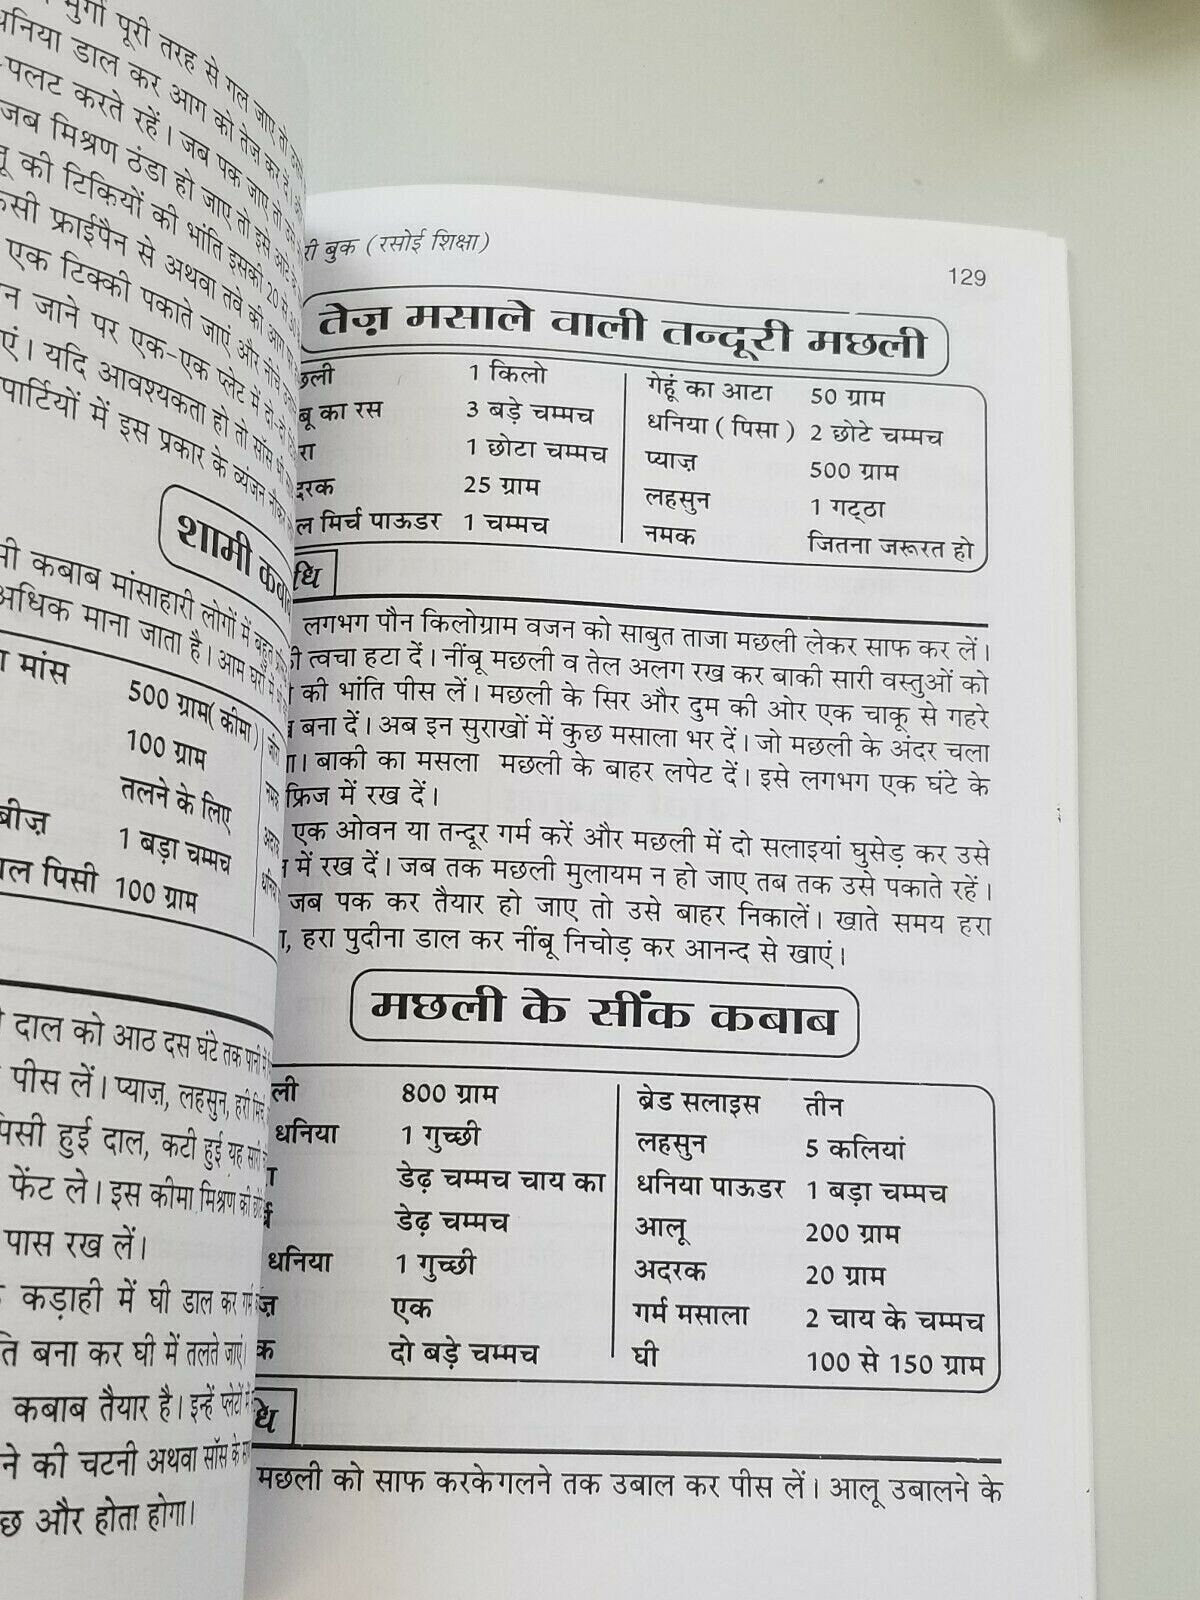 मुर्गा पूरी तरह से गल जाए तो
धनिया डाल कर आग को तेज़ कर दें।
-पलट करते रहें। जब पक जाए तो
जब मिश्रण ठंडा हो जाए तो इसे आटे
की टिकियों की भांति इसकी 20 से
फ्राईपैन से अथवा तवे को आग
एक टिक्की पकाते जाएं और नीचे
जाने पर एक-एक प्लेट में दो-दो
यदि आवश्यकता हो तो सॉस भी
पार्टियों में इस प्रकार के व्यंजन
शामी कबाब
कबाब मांसाहारी लोगों में बहुत
अधिक माना जाता है। आम घरों में
मांस 500 ग्राम(कीमा)
100 ग्राम
तलने के लिए
1 बड़ा चम्मच
पिसी 100 ग्राम
दाल को आठ दस घंटे तक पानी में
पीस लें। प्याज़, लहसुन, हरी मिर्च
पिसी हुई दाल, कटी हुई यह सारी
फेंट ले। इस कीमा मिश्रण की
पास रख लें।
कड़ाही में घी डाल कर गर्म
बना कर घी में तलते जाएं।
कबाब तैयार है। इन्हें प्लेटों में
की चटनी अथवा सॉस के
और होता होगा।
बुक (रसोई शिक्षा)
129
तेज़ मसाले वाली तन्दूरी मछली
1 किलो गेहूं का आटा 50 ग्राम
का रस 3 बड़े चम्मच धनिया (पिसा) 2 छोटे चम्मच
1 छोटा चम्मच प्याज़ 500 ग्राम
25 ग्राम लहसुन 1 गट्ठा
मिर्च पाऊडर 1 चम्मच नमक जितना जरूरत हो
लगभग पौन किलोग्राम वजन को साबुत ताजा मछली लेकर साफ कर लें।
त्वचा हटा दें। नींबू मछली व तेल अलग रख कर बाकी सारी वस्तुओं को
की भांति पीस लें। मछली के सिर और दुम की ओर एक चाकू से गहरे
बना दें। अब इन सुराखों में कुछ मसाला भर दें। जो मछली के अंदर चला
बाकी का मसला मछली के बाहर लपेट दें। इसे लगभग एक घंटे के
फ्रिज में रख दें।
एक ओवन या तन्दूर गर्म करें और मछली में दो सलाइयां घुसेड़ कर उसे
में रख दें। जब तक मछली मुलायम न हो जाए तब तक उसे पकाते रहें।
जब पक कर तैयार हो जाए तो उसे बाहर निकालें। खाते समय हरा
हरा पुदीना डाल कर नींबू निचोड़ कर आनन्द से खाएं।
मछली के सींक कबाब
800 ग्राम ब्रेड सलाइस तीन
धनिया 1 गुच्छी लहसुन 5 कलियां
डेढ़ चम्मच चाय का धनिया पाऊडर 1 बड़ा चम्मच
डेढ़ चम्मच आलू 200 ग्राम
धनिया 1 गुच्छी अदरक 20 ग्राम
एक गर्म मसाला 2 चाय के चम्मच
दो बड़े चम्मच घी 100 से 150 ग्राम
मछली को साफ करकेगलने तक उबाल कर पीस लें। आलू उबालने के